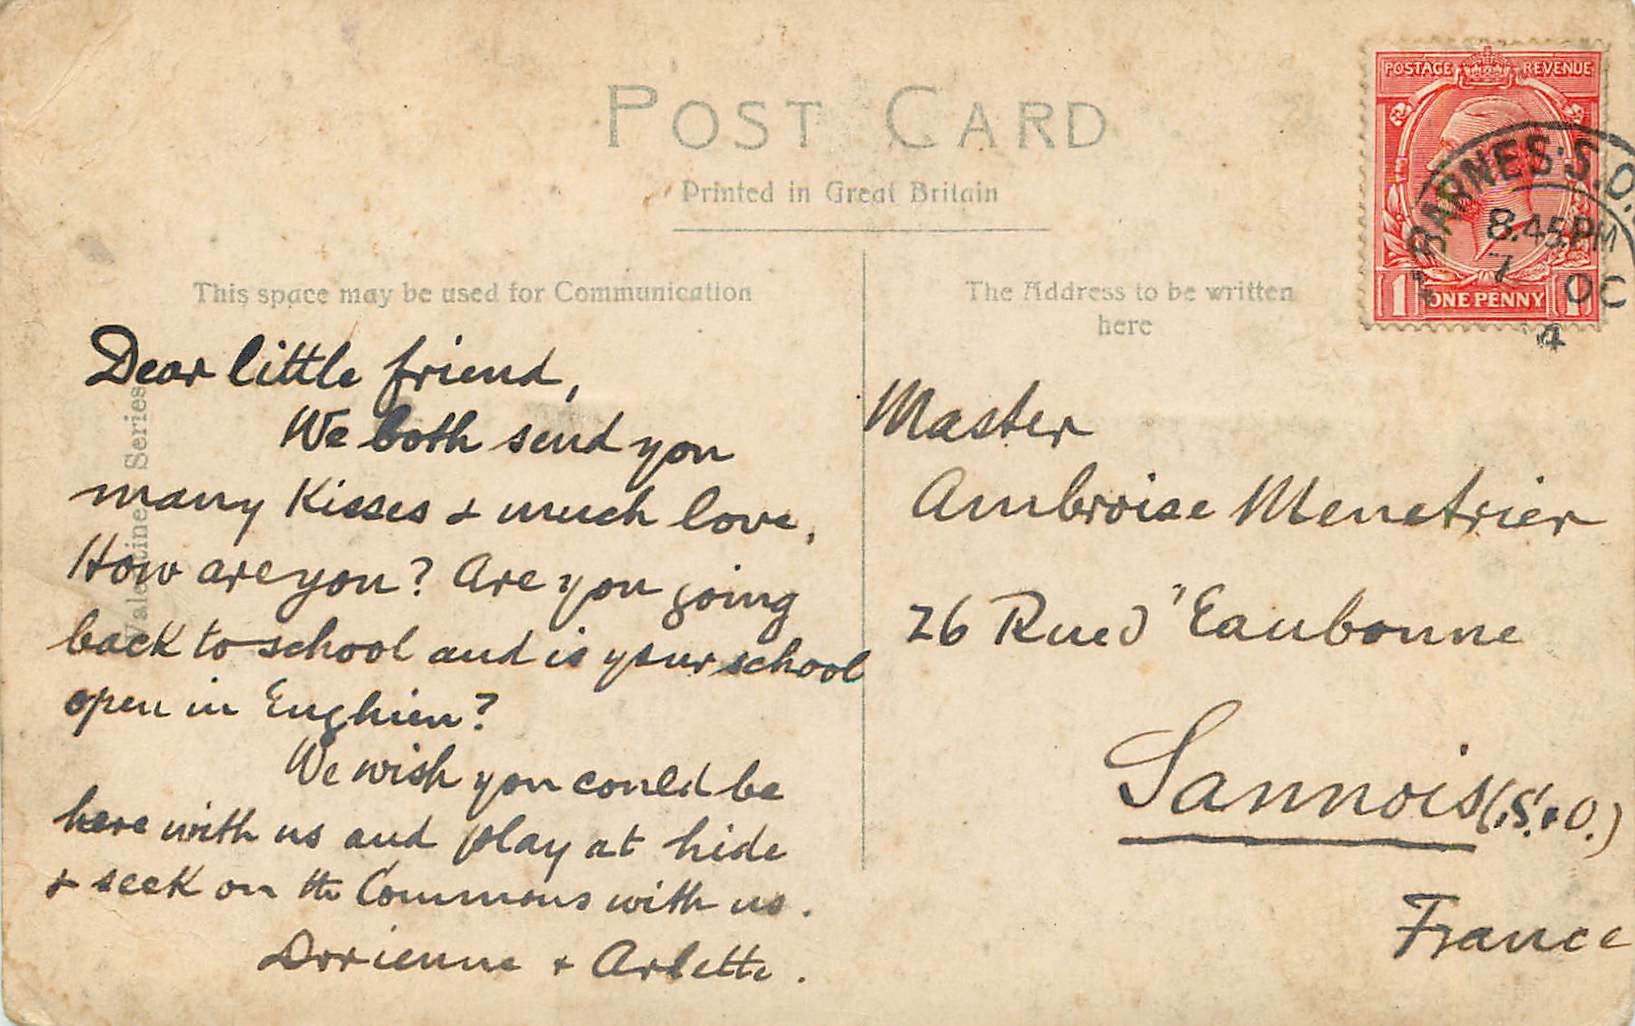 POST CARD
Printed in Great Britain
This space may be used for Communication
The Address to be written
here
POSTAGE REVENUE
1 ONE PENNY 1
BARNES·S.O.
8.45 PM
7 OC
4
Valentine Series
Dear little friend,
We both send you
many Kisses & much love,
How are you? Are you going
back to school and is your school
open in Enghien?
We wish you could be
here with us and play at hide
& seek on the Commons with us.
Dorienne & Arlette.
Master
Ambroise Menetrier
26 Rue d'Eaubonne
Sannois (S. & O.)
France